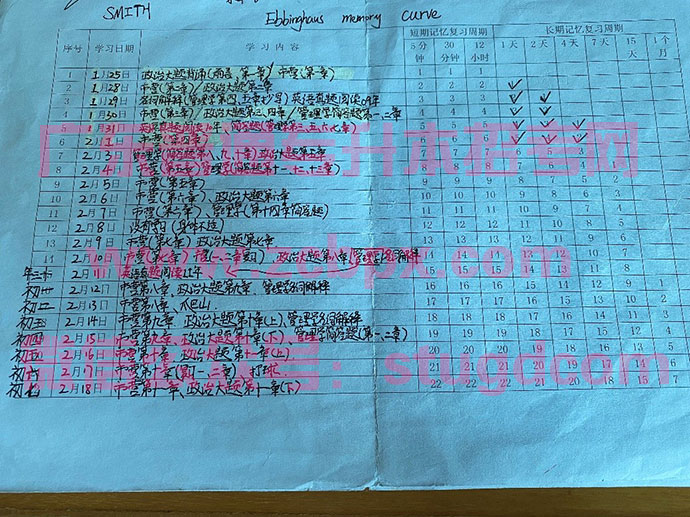 SMITH Ebbinghaus memory curve
序号 学习日期 学习内容 短期记忆复习周期 长期记忆复习周期
5分钟 30分钟 12小时 1天 2天 4天 7天 15天 1个月
1 1月25日 政治大题背诵(前言、第一章)/市营(第一章) 1 1 1
2 1月28日 市营(第二章)/政治大题第二章 2 2 2 1
3 1月29日 名词解释(管理学第四、五章抄写)英语真题阅读09年 3 3 3 2 1
4 1月30日 市营(第三章)/政治大题第三、四章/管理学简答题第一、二章 4 4 4
5 1月31日 英语真题阅读10年、简答题(管理学第三、五、六、七章) 5 5 5
6 2月1日 市营(第四章) 6 6 6
7 2月3日 管理学(简答题第八、九、十章)政治大题第五章 7 7 7 6 5 3
8 2月4日 市营(第五章)管理学(简答题第十一、十二、十三章) 8 8 8 7 6 4 1
9 2月5日 市营(第五章) 9 9 9 8 7 5 2
10 2月6日 市营(第六章)、政治大题第六章 10 10 10 9 8 6 3
11 2月7日 市营(第六章)、管理学(第十四章简答题) 11 11 11 10 9 7 4
12 2月8日 没有学习(身体不适) 12 12 12 11 10 8 5
13 2月9日 市营(第七章)政治大题第七章 13 13 13 12 11 9 6
14 2月10日 政治大题第八章(管理学)名词解释 14 14 14 13 12 10 7
2月11日 英语真题阅读11年 15 15 15 14 13 11 8
初一 2月12日 市营第八章、政治大题第九章、管理学名词解释 16 16 16 15 14 12 9 1
初二 2月13日 市营第八章、爬巴山 17 17 17 16 15 13 10 2
2月14日 市营第九章、政治大题第十章(上)、管理学名词解释 18 18 18 17 16 14 11 3
初四 2月15日 市营第九章、政治大题第十章(下)、管理学简答题(第一、二章) 19 19 19 18 17 15 12 4
初五 2月16日 市营第十章、政治大题第十一章(上) 20 20 20 19 18 16 13 5
初六 2月17日 市营第十章、打球 21 21 21 20 19 17 14 6
初七 2月18日 市营第十一章、政治大题第十一章(下) 22 22 22 21 20 18 15 7